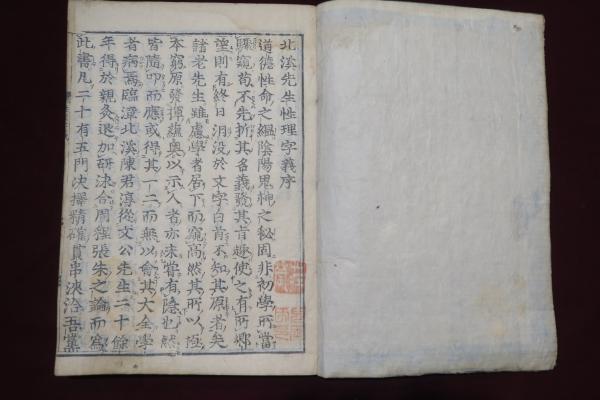 北溪先生性理字義序
道德性命之緼陰陽鬼神之秘固非初學所當
驟窺苟不先折其名義發其旨趣使之有所鄉
望則有終日汩没於文字白首不知其原者矣
諸老先生雖慮學者居下而窺高然其所以極
本窮原發揮蘊奥以示人者亦未嘗有隱也然
皆隨叩而應或得其一二而無以會其大全學
者病焉臨漳北溪陳君淳從文公先生二十餘
年得於親炙退加研泳合周程張朱之論而爲
此書凡二十有五門决擇精確貫串浹洽吾黨